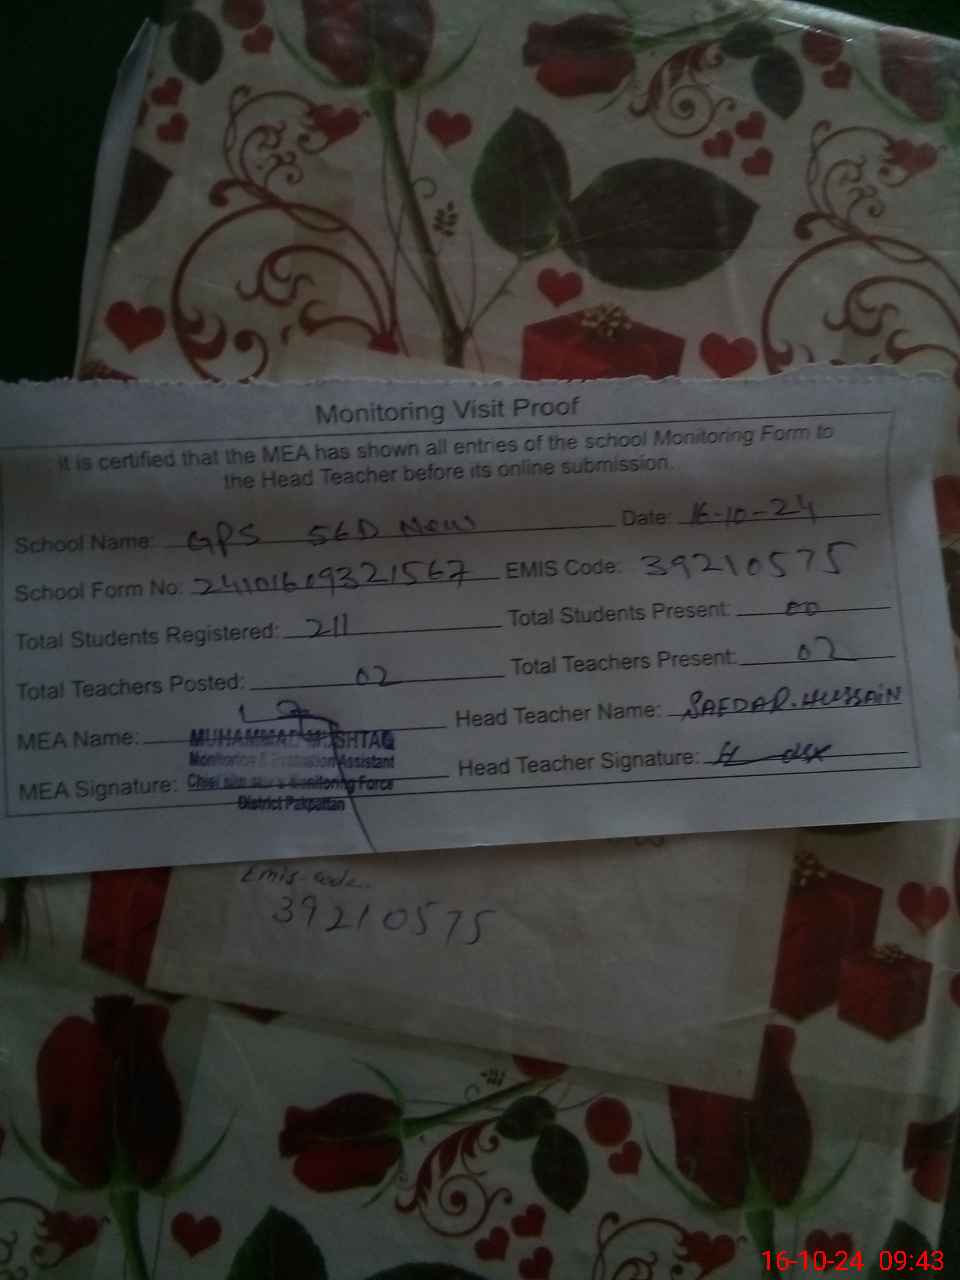 Monitoring Visit Proof
it is certified that the MEA has shown all entries of the school Monitoring Form to
the Head Teacher before its online submission.
School Name: GPS 56D New Date: 16-10-24
School Form No: 24101609321567 EMIS Code: 39210575
Total Students Registered: 211 Total Students Present: 00
Total Teachers Posted: 02 Total Teachers Present: 02
MEA Name: Head Teacher Name: SAFDAR. HUSSAIN
MUHAMMAD MUSHTAQ
Monitoring & Evaluation Assistant
MEA Signature: Head Teacher Signature:
Chief Monitoring Force
District Pakpattan
Emis-code..
39210575
16-10-24 09:43